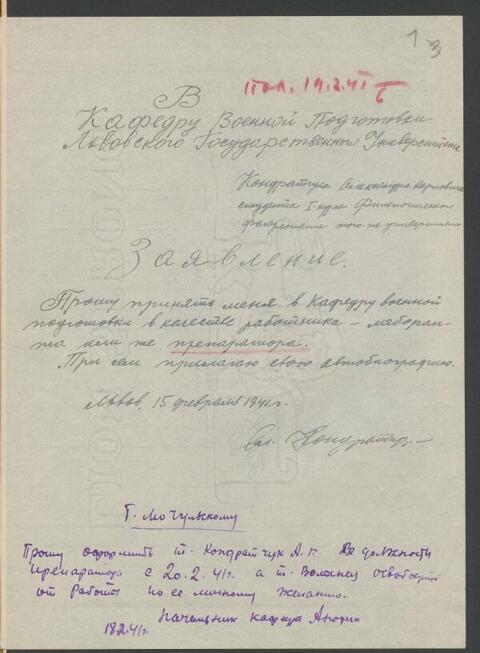 1 3
пол. 19.2.41
В
Кафедру Военной Подготовки
Львовского Государственного Университета
Кондратчука Александра Карловича
студента I. курса Филологического
факультета того-же университета
Заявление.
Прошу принять меня в Кафедру военной
подготовки в качестве работника – лаборан-
та или же препаратора.
При сем прилагаю свою автобиографию.
Львов, 15 февраля 1941. г.
Ал. Кондратчук
Т. Мочульскому
Прошу оформить т. Кондратчук А.К. на должности
препаратора с 20.2.41г. а т. Волынец освободить
от работы по ее личному желанию.
Начальник кафедры
18.2.41г.